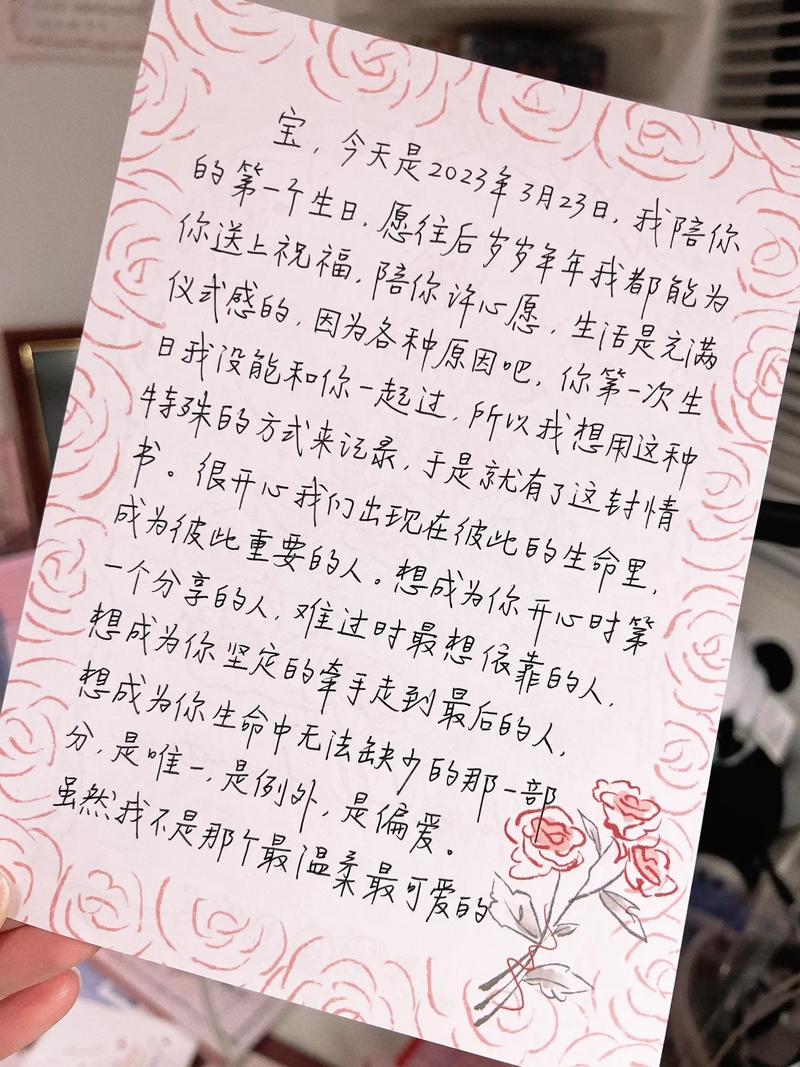 宝，今天是2023年3月23日，我陪你
的第一个生日，愿往后岁岁年年我都能为
你送上祝福，陪你许心愿，生活是充满
仪式感的，因为各种原因吧，你第一次生
日我没能和你一起过，所以我想用这种
特殊的方式来记录，于是就有了这封情
书。很开心我们出现在彼此的生命里，
成为彼此重要的人。想成为你开心时第
一个分享的人，难过时最想依靠的人，
想成为你坚定的牵手走到最后的人，
想成为你生命中无法缺少的那一部
分，是唯一，是例外，是偏爱。
虽然我不是那个最温柔最可爱的